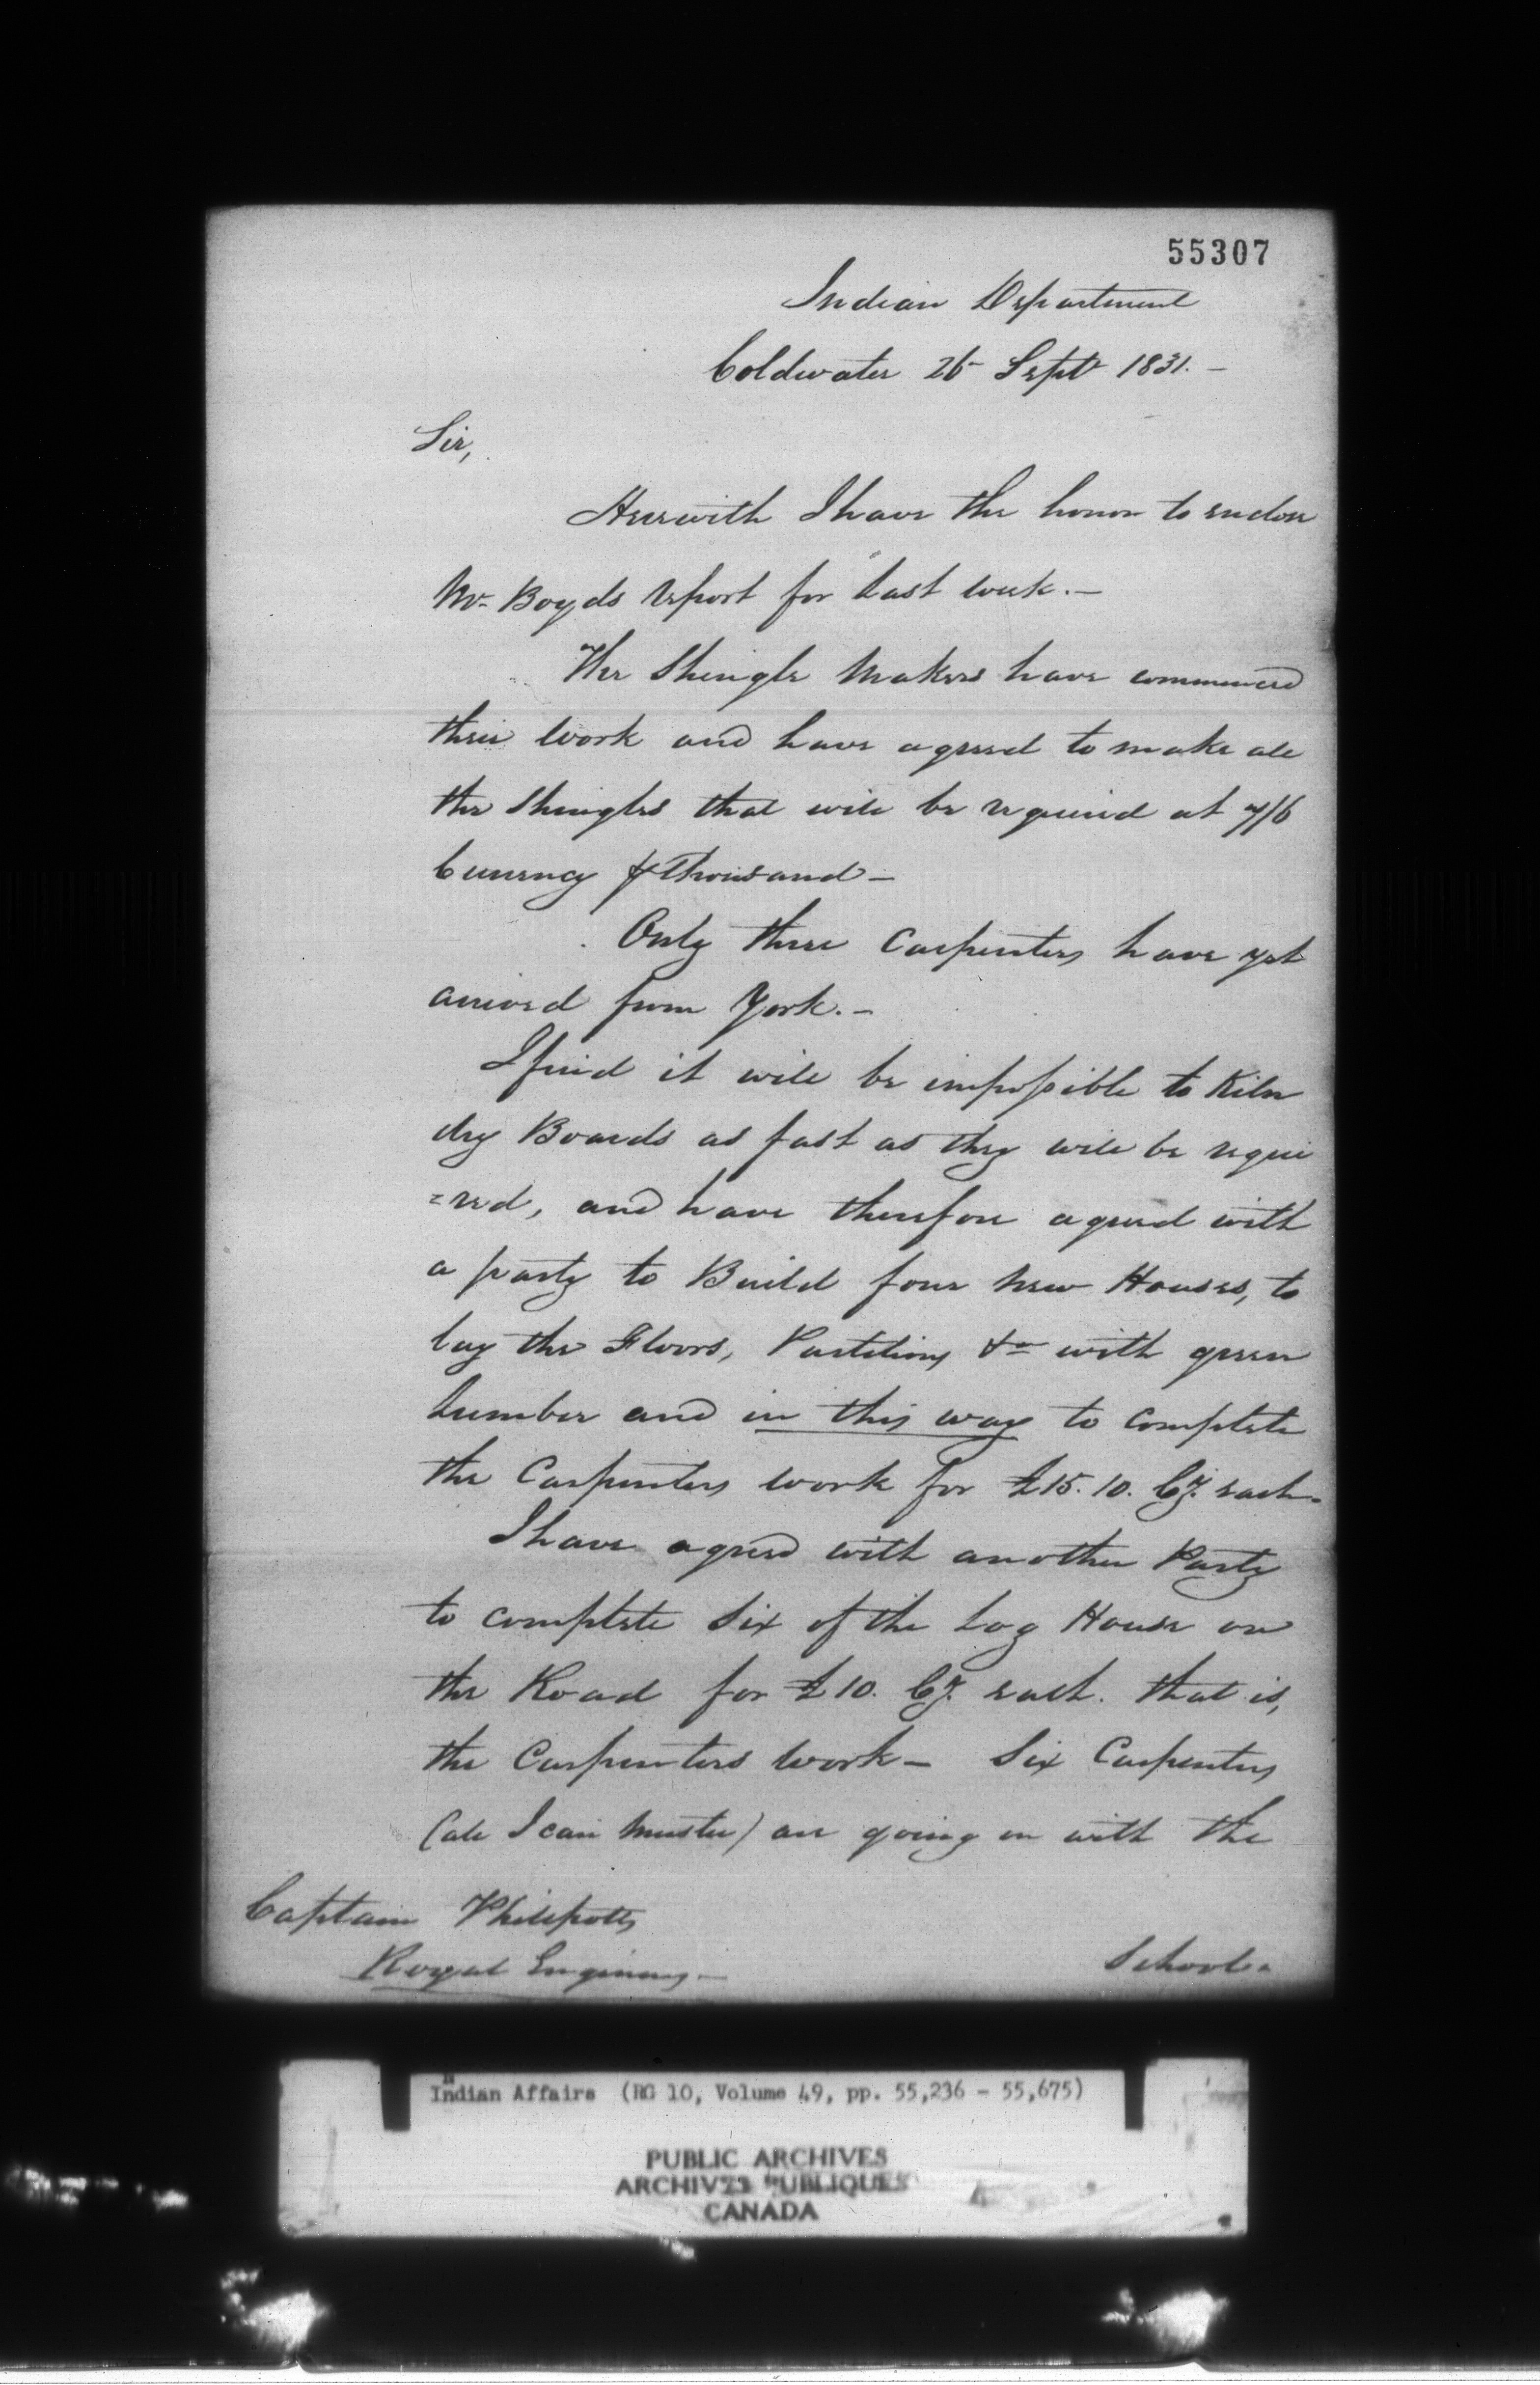 55307
Indian Department
Coldwater 26 Septr 1831.-
Sir,
Herewith I have the honor to enclose
Mr. Boyds report for last week.-
The Shingle Makers have commenced
their work and have agreed to make all
the Shingles that will be required at 7/6
Currency ⅌ Thousand-
Only three Carpenters have yet
arrived from York.-
I find it will be impossible to Kiln
dry Boards as fast as they will be requi
=red, and have therefore agreed with
a party to Build four new Houses, to
lay the Floors, Partitions &c with green
Lumber and in this way to complete
the Carpenters work for £15.10. Cy. each-
I have agreed with another Party
to complete Six of the Log House on
the Road for £10. Cy. each. that is,
the Carpenters work- Six Carpenters
(all I can muster) are going on with the
Captain Philpotts
Royal Engineers-
School-
Indian Affairs (RG 10, Volume 49, pp. 55,236 - 55,675)
PUBLIC ARCHIVES
ARCHIVES PUBLIQUES
CANADA